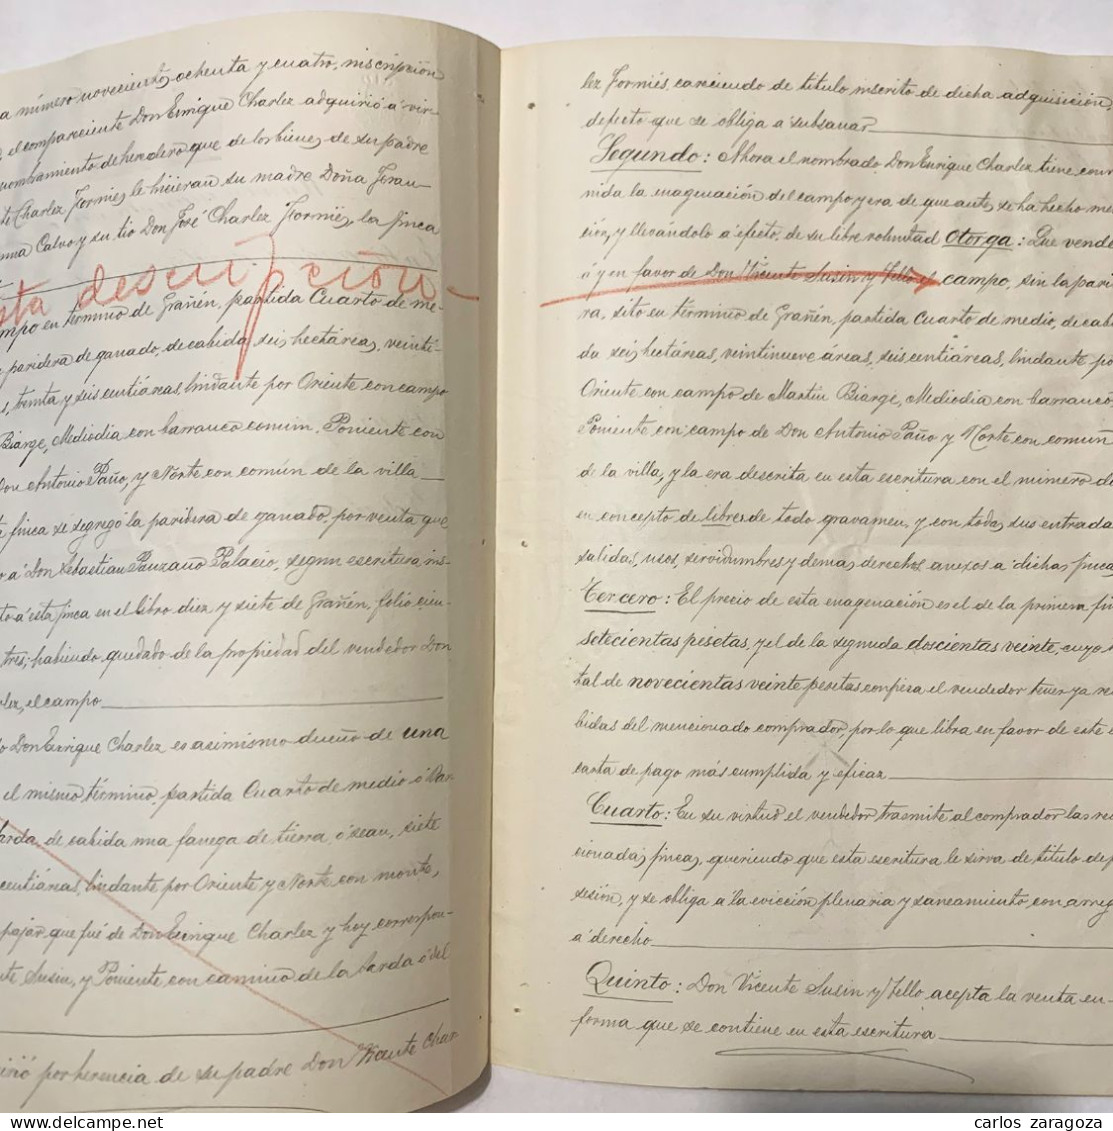 a número novecientos ochenta y cuatro, inscripción
el compareciente Don Enrique Charlez adquirió á vir-
nombramiento de heredero que de los bienes de su padre
te Charlez Formiés le hicieran su madre Doña Fran-
Calvo y su tio Don José Charlez Formiés, la finca
sta descripción -
mpo en término de Grañen, partida Cuarto de me-
paridera de ganado, de cabida seis hectáreas, veinti-
s, treinta y seis centiáreas, lindante por Oriente con campo
Biarge, Mediodia con barranco comun, Poniente con
Don Antonio Paño, y Norte con común de la villa
a finca se segregó la paridera de ganado, por venta que
o á Don Sebastian Panzano Palacio, segun escritura ins-
to á esta finca en el libro diez y siete de Grañén, folio cien-
tres; habiendo quedado de la propiedad del vendedor Don
rlez, el campo
o Don Enrique Charlez es asimismo dueño de una
el mismo término, partida Cuarto de medio ó Bar-
arda de cabida una fanega de tierra, ó sean, siete
centiáreas, lindante por Oriente y Norte con monte,
pajar que fué de Don Enrique Charlez y hoy correspon-
nte Susin, y Poniente con camino de la barda ó del
irió por herencia de su padre Don Vicente Char-
lez Formiés, careciendo de titulo inscrito de dicha adquisición,
defecto que se obliga á subsanar
Segundo: Ahora el nombrado Don Enrique Charlez tiene conve-
nida la enagenación del campo y era de que antes se ha hecho men-
ción, y llevándolo á efecto, de su libre voluntad Otorga: Que vende
á y en favor de Don Vicente Susin y Vello el campo, sin la paride-
ra, sito en término de Grañen, partida Cuarto de medio, de cabi-
da seis hectáreas, veintinueve áreas, seis centiáreas, lindante por
Oriente con campo de Martin Biarge, Mediodia con barranco,
Poniente con campo de Don Antonio Paño y Norte con comun
de la villa, y la era descrita en esta escritura con el número do
en concepto de libres de todo gravamen, y con todas sus entradas
salidas, usos, servidumbres y demas derechos anexos a dichas fincas
Tercero: El precio de esta enagenación es el de la primera fin
setecientas pesetas, y el de la segunda doscientas veinte, cuyo to
tal de novecientas veinte pesetas confiesa el vendedor tener ya reci-
bidas del mencionado comprador, por lo que libra en favor de este
carta de pago más cumplida y eficaz
Cuarto: En su virtud el vendedor trasmite al comprador las re
cionadas fincas, queriendo que esta escritura le sirva de titulo de po
sesión, y se obliga á la evicción plenaria y saneamiento con arreg
á derecho
Quinto: Don Vicente Susin y Vello acepta la venta en
forma que se contiene en esta escritura
carlos zaragoza